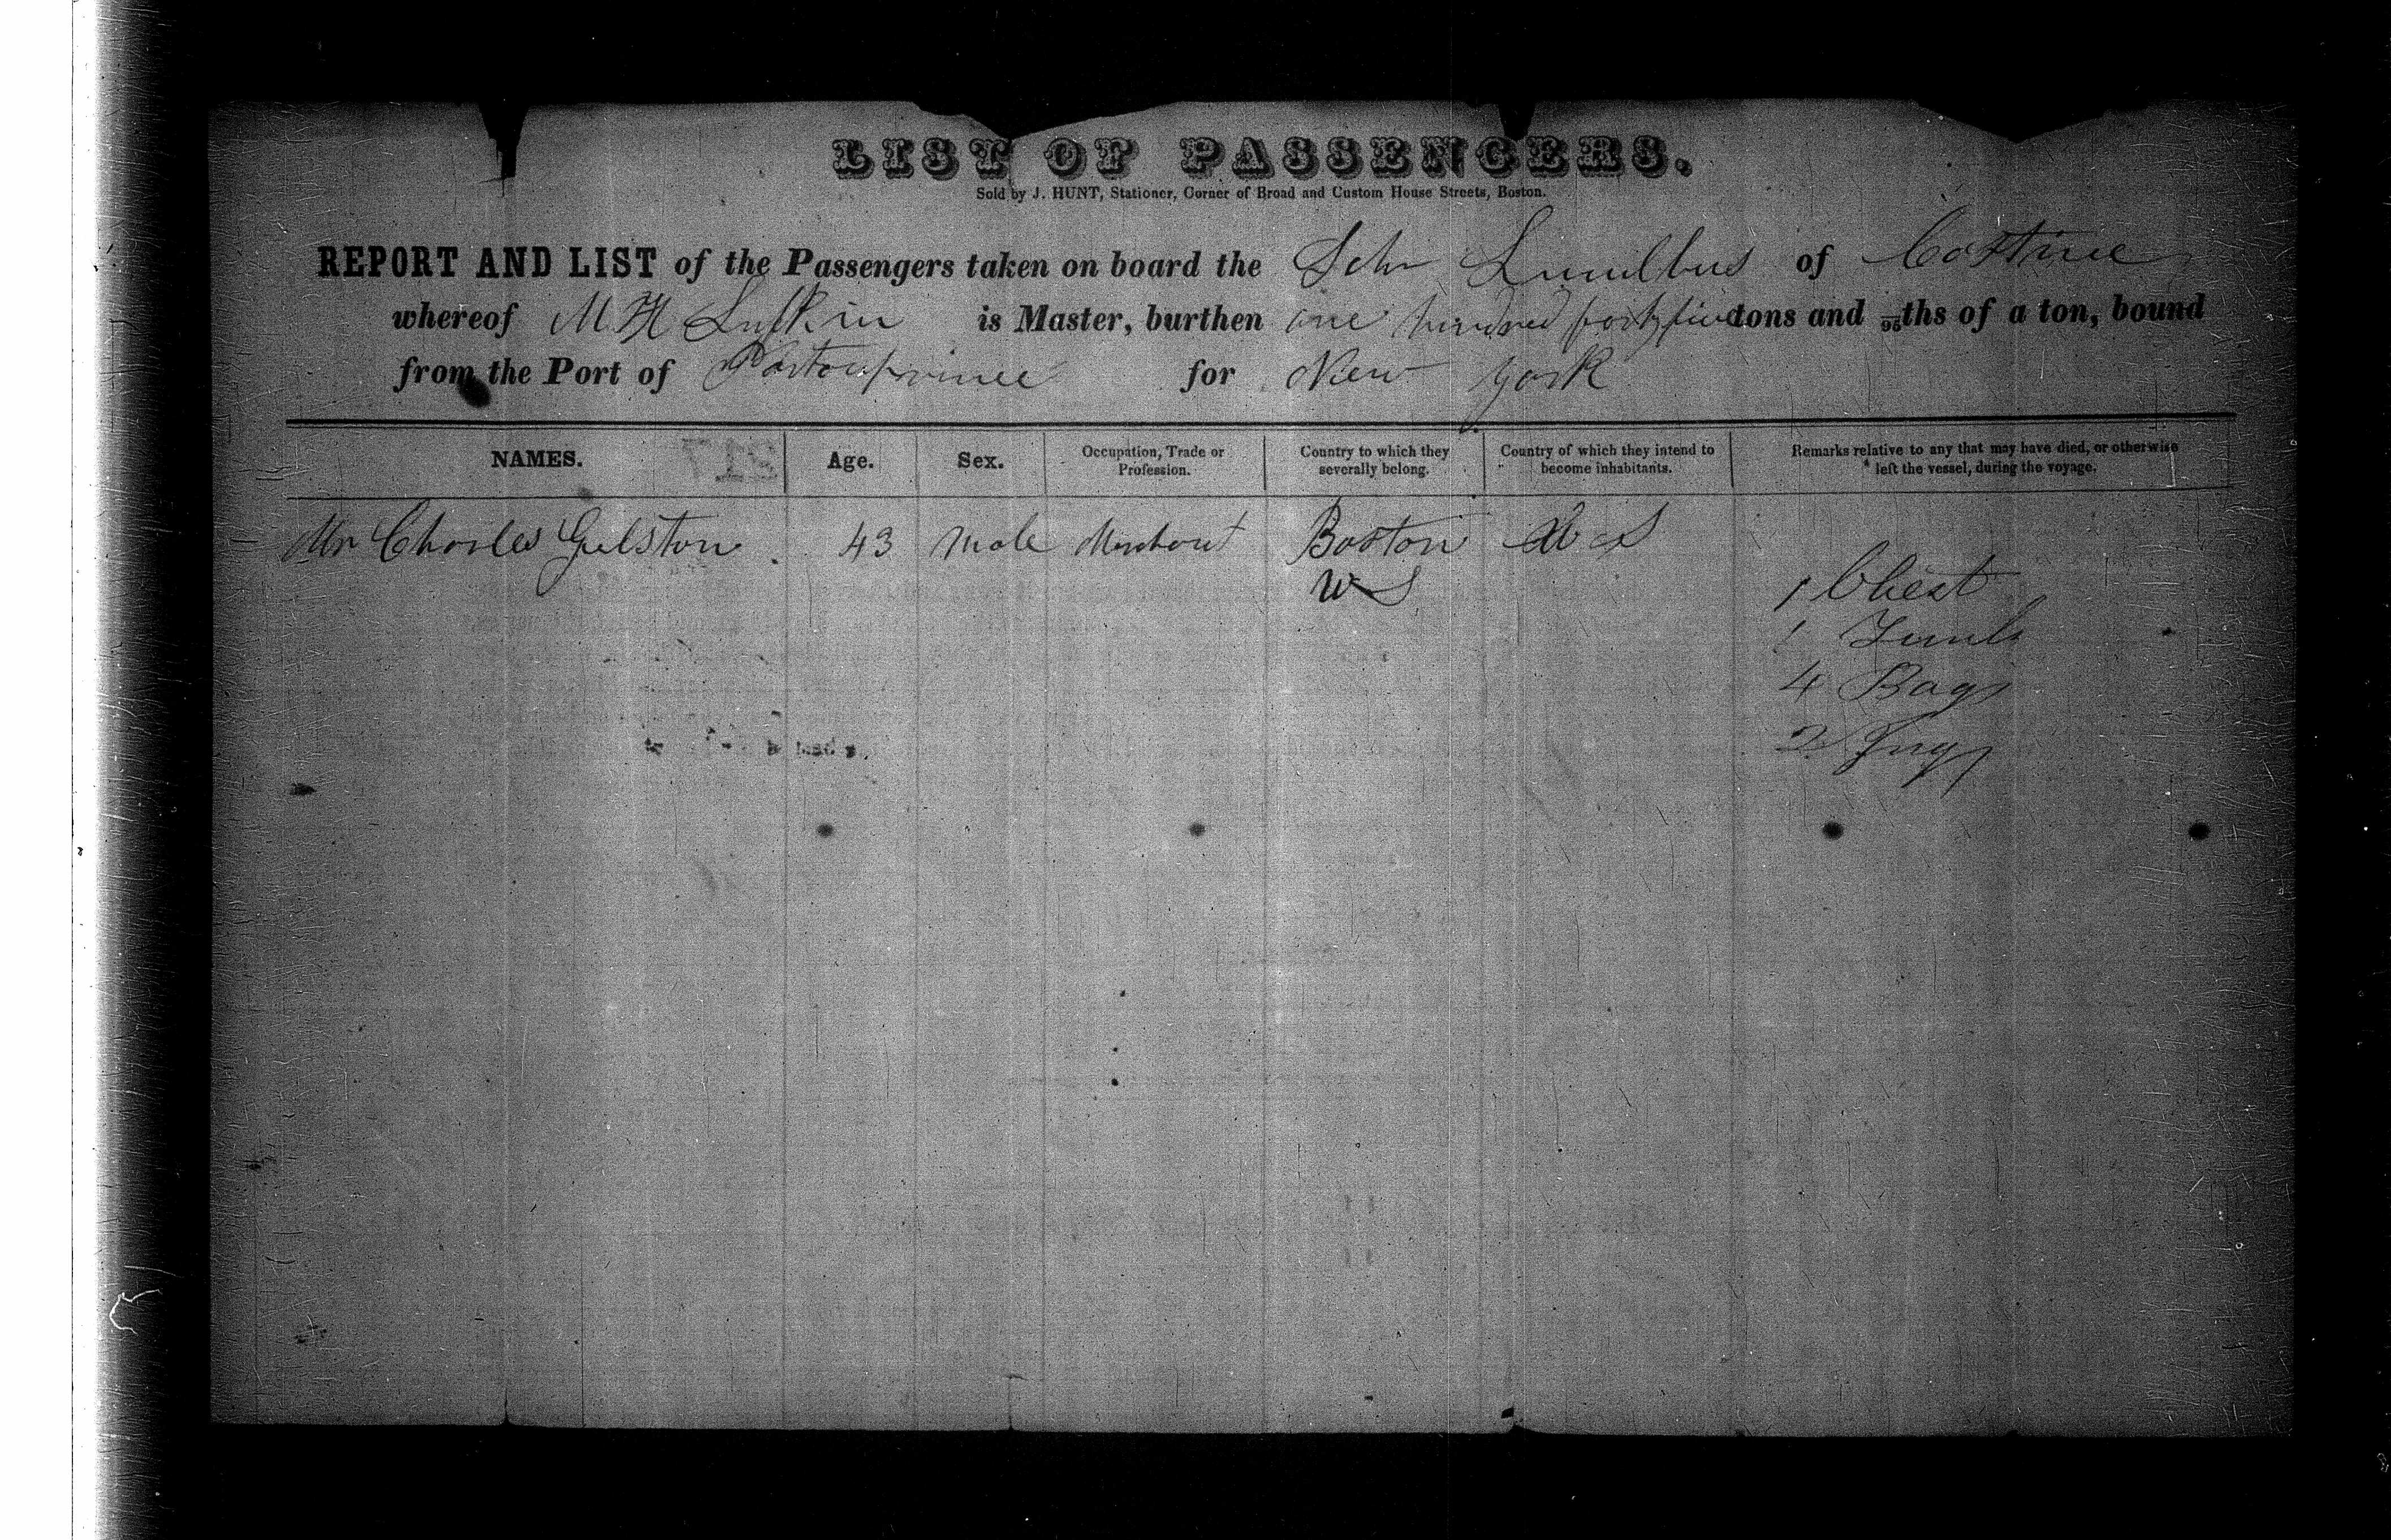 LIST OF PASSENGERS.
Sold by J. HUNT, Stationer, Corner of Broad and Custom House Streets, Boston.
REPORT AND LIST of the Passengers taken on board the Schr of Castine
whereof M H Lufkin is Master, burthen one hundred forty five tons and /95ths of a ton, bound
from the Port of Portauprince for New York
NAMES. Age. Sex. Occupation, Trade or Profession. Country to which they severally belong. Country of which they intend to become inhabitants. Remarks relative to any that may have died, or otherwise left the vessel, during the voyage.
217
Mr Charles Gelston 43 Male Merchant Boston U S
U S
1 Chest
1 Trunk
4 Bags
2 Jugs